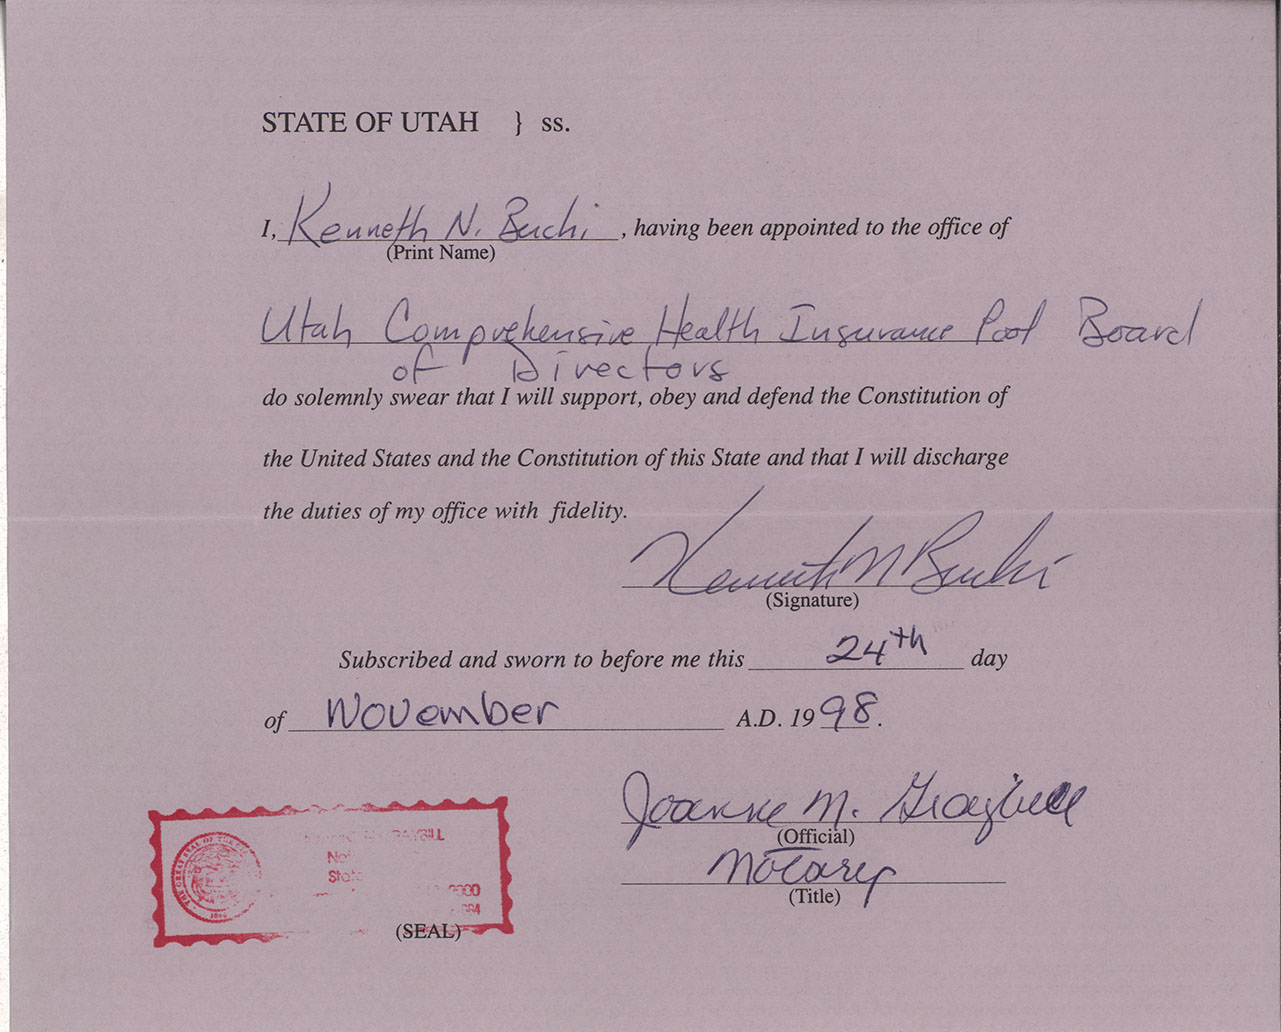 STATE OF UTAH } ss.
I, Kenneth N. Buchi, having been appointed to the office of
(Print Name)
Utah Comprehensive Health Insurance Pool Board
of Directors
do solemnly swear that I will support, obey and defend the Constitution of
the United States and the Constitution of this State and that I will discharge
the duties of my office with fidelity.
Kenneth N Buchi
(Signature)
Subscribed and sworn to before me this 24th day
of November A.D. 1998.
Joanne M. Graybill
(Official)
Notary
(Title)
THE GREAT SEAL OF THE
1896
(SEAL)